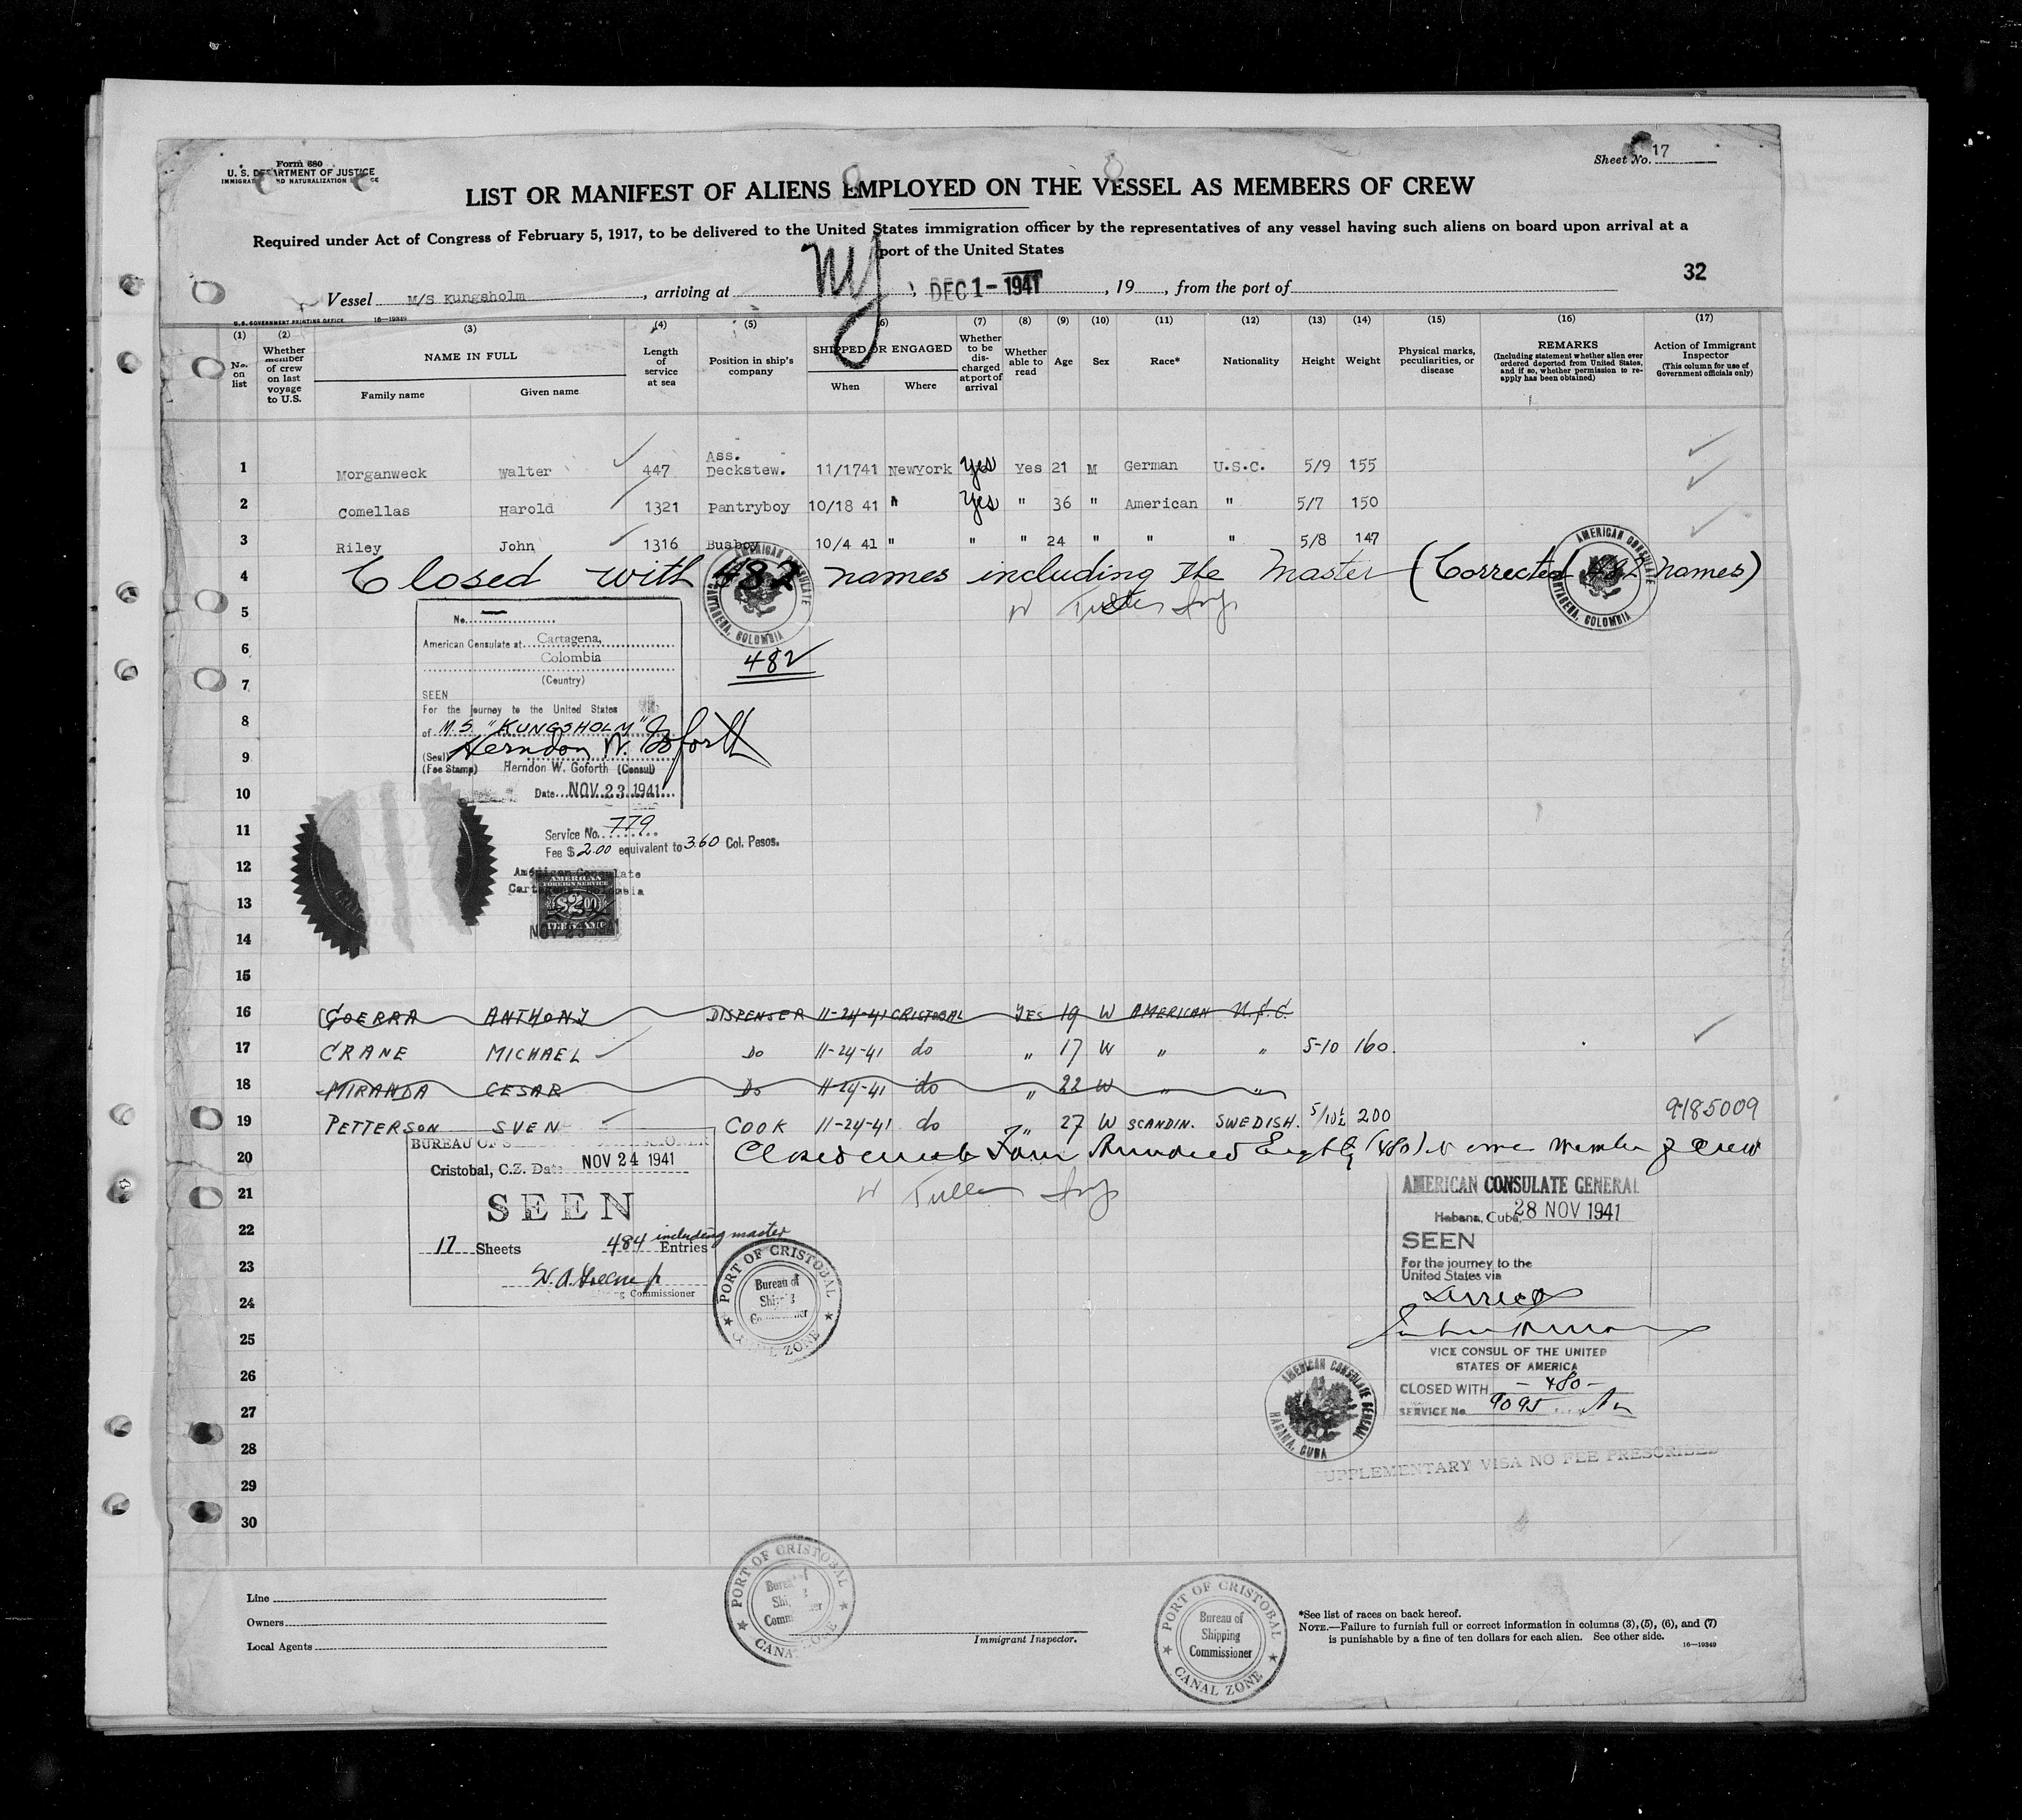 Form 680
U. S. DEPARTMENT OF JUSTICE
IMMIGRATION AND NATURALIZATION SERVICE
Sheet No. 17
LIST OR MANIFEST OF ALIENS EMPLOYED ON THE VESSEL AS MEMBERS OF CREW
Required under Act of Congress of February 5, 1917, to be delivered to the United States immigration officer by the representatives of any vessel having such aliens on board upon arrival at a
port of the United States
32
Vessel M/S Kungsholm, arriving at NY, DEC 1 - 1941, 19, from the port of
U. S. GOVERNMENT PRINTING OFFICE 16—19349
(1) (2) (3) (4) (5) (6) (7) (8) (9) (10) (11) (12) (13) (14) (15) (16) (17)
No. on list
Whether member of crew on last voyage to U.S.
NAME IN FULL
Family name
Given name
Length of service at sea
Position in ship's company
SHIPPED OR ENGAGED
When
Where
Whether to be discharged at port of arrival
Whether able to read
Age
Sex
Race*
Nationality
Height
Weight
Physical marks, peculiarities, or disease
REMARKS
(Including statement whether alien ever ordered deported from United States, and if so, whether permission to reapply has been obtained)
Action of Immigrant Inspector
(This column for use of Government officials only)
1 Morganweck Walter 447 Ass. Deckstew. 11/1741 NewYork Yes Yes 21 M German U.S.C. 5/9 155
2 Comellas Harold 1321 Pantryboy 10/18 41 " Yes " 36 " American " 5/7 150
3 Riley John 1316 Busboy 10/4 41 " " " 24 " " " 5/8 147
4 Closed with 482 names including the Master (Corrected 482 names)
5
6
7
8
9
10
11
12
13
14
15
AMERICAN CONSULATE
CARTAGENA, COLOMBIA
AMERICAN CONSULATE
CARTAGENA, COLOMBIA
482
No.
American Consulate at Cartagena,
Colombia
(Country)
SEEN
For the journey to the United States
of M.S. "KUNGSHOLM"
Herndon W. Goforth
(Seal)
(Fee Stamp) Herndon W. Goforth (Consul)
Date NOV 23 1941
Service No. 779
Fee $ 2.00 equivalent to 3.60 Col. Pesos.
American Consulate
Cartagena, Colombia
AMERICAN
FOREIGN SERVICE
$2.00
FEE STAMP
NOV 23 1941
16 GUERRA ANTHONY DISPENSER 11-24-41 CRISTOBAL YES 19 W AMERICAN U.S.C.
17 CRANE MICHAEL Do 11-24-41 do " 17 W " " 5-10 160.
18 MIRANDA CESAR Do 11-24-41 do " 22 W " "
19 PETTERSON SVEN COOK 11-24-41 do " 27 W SCANDIN. SWEDISH. 5/10½ 200 9185009
20 Closed with Four Hundred Eighty (480) member of crew
21
22
23
24
25
26
27
28
29
30
BUREAU OF
Cristobal, C.Z. Date NOV 24 1941
SEEN
17 Sheets 484 including master Entries
Commissioner
PORT OF CRISTOBAL
Bureau of
Shipping
Commissioner
CANAL ZONE
AMERICAN CONSULATE GENERAL
Habana, Cuba, 28 NOV 1941
SEEN
For the journey to the
United States via
Direct
VICE CONSUL OF THE UNITED
STATES OF AMERICA
CLOSED WITH - 480 -
SERVICE No. 9095
AMERICAN CONSULATE GENERAL
HABANA, CUBA
SUPPLEMENTARY VISA NO FEE PRESCRIBED
PORT OF CRISTOBAL
Bureau of
Shipping
Commissioner
CANAL ZONE
PORT OF CRISTOBAL
Bureau of
Shipping
Commissioner
CANAL ZONE
Line
Owners
Local Agents
Immigrant Inspector.
*See list of races on back hereof.
NOTE.—Failure to furnish full or correct information in columns (3), (5), (6), and (7)
is punishable by a fine of ten dollars for each alien. See other side.
16—19349